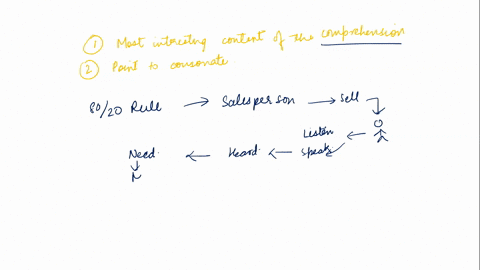 1 Most interesting content of the comprehension
2 Point to consonate
80/20 Rule → Salesperson → Sell
Listen
Need ← Heard ← Speak
N